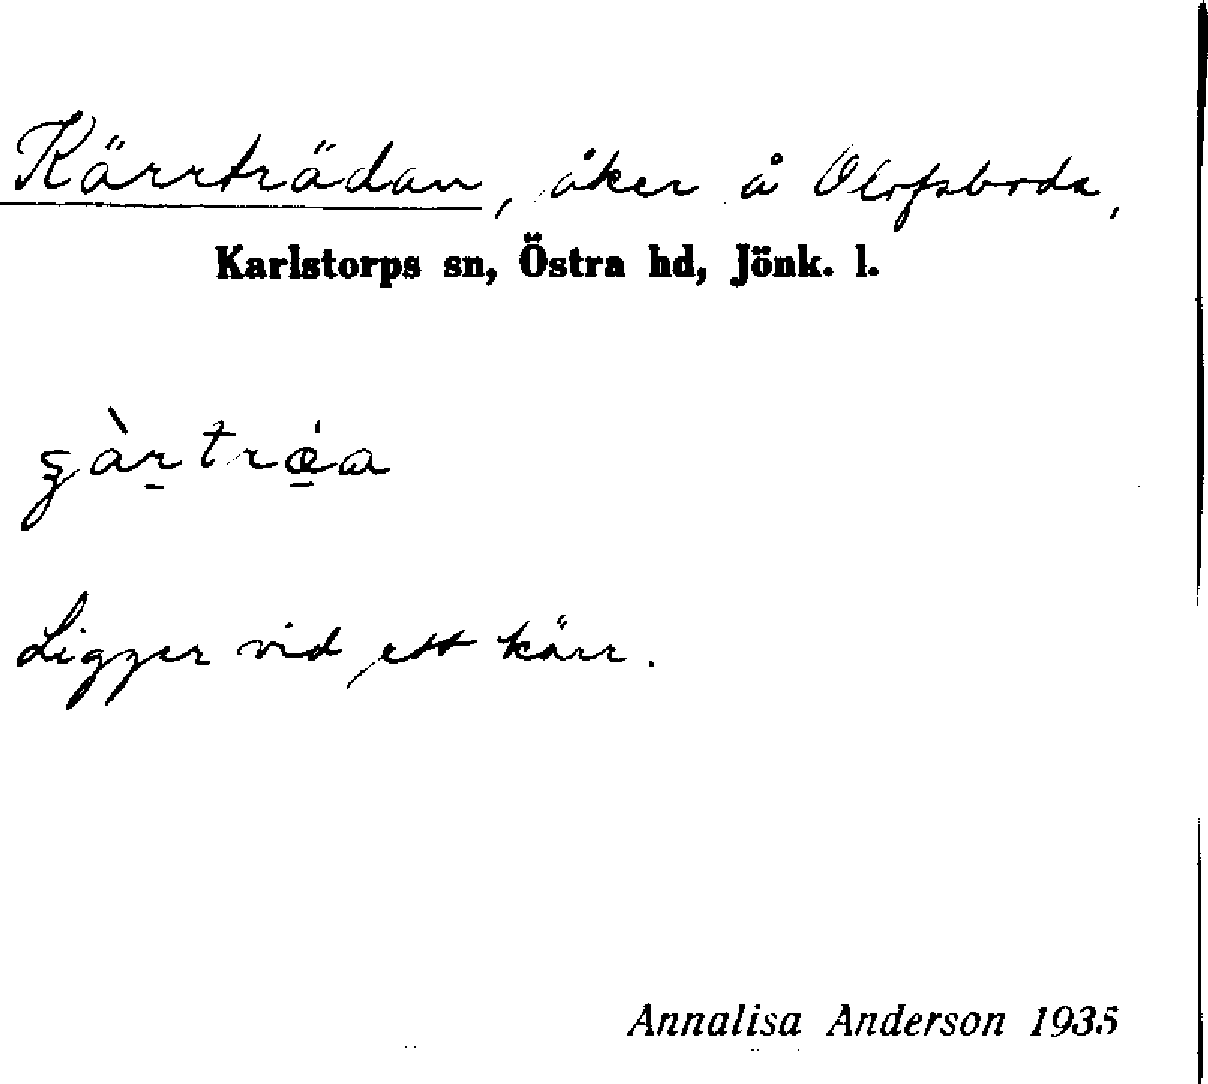 Kärrträdan, åker å Olofsboda,
Karlstorps sn, Östra hd, Jönk. l.
Ligger vid ett kärr.
Annalisa Anderson 1935